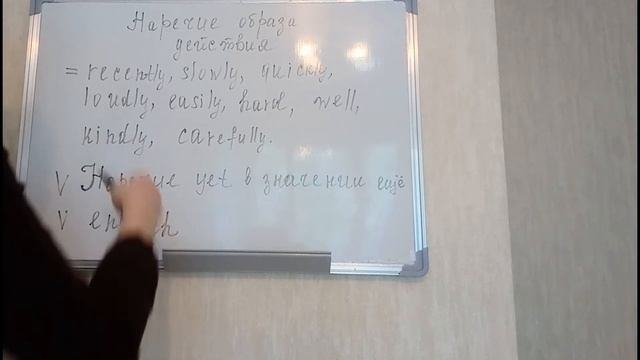 Наречие образа
действия
= recently, slowly, quickly,
loudly, easily, hard, well,
kindly, carefully.
V Наречие yet в значении ещё
V